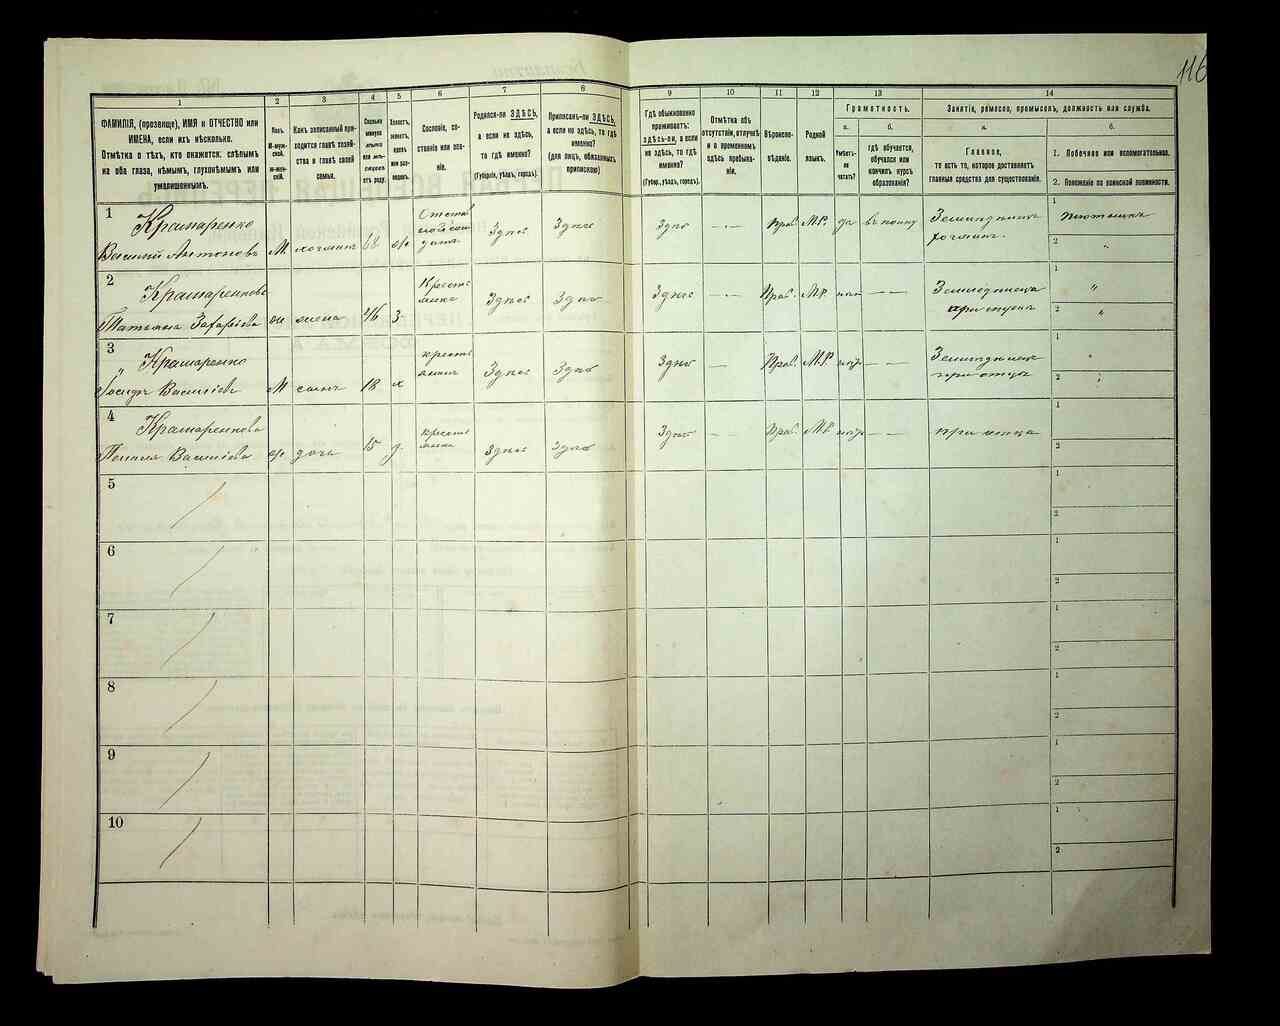 116
1
2
3
4
5
6
7
8
9
10
11
12
13
14
ФАМИЛІЯ, (прозвище), ИМЯ и ОТЧЕСТВО или
ИМЕНА, если ихъ нѣсколько.
Отмѣтка о тѣхъ, кто окажется: слѣпымъ
на оба глаза, нѣмымъ, глухонѣмымъ или
умалишеннымъ.
Полъ.
М-муж-
ской.
Ж-жен-
скій.
Какъ записанный при-
ходится главѣ хозяй-
ства и главѣ своей
семьи.
Сколько
минуло
лѣтъ
или мѣ-
сяцевъ
отъ роду.
Холостъ,
женатъ,
вдовъ
или раз-
веденъ.
Сословіе, со-
стояніе или зва-
ніе.
Родился-ли ЗДѢСЬ,
а если не здѣсь,
то гдѣ именно?
(Губернія, уѣздъ, городъ).
Приписанъ-ли ЗДѢСЬ,
а если не здѣсь, то гдѣ
именно?
(для лицъ, обязанныхъ
припискою)
Гдѣ обыкновенно
проживаетъ:
здѣсь-ли, а если
не здѣсь, то гдѣ
именно?
(Губер., уѣздъ, городъ).
Отмѣтка объ
отсутствіи, отлучкѣ
и о временномъ
здѣсь пребыва-
ніи.
Вѣроиспо-
вѣданіе.
Родной
языкъ.
Грамотность.
а.
б.
Умѣетъ-
ли
читать?
гдѣ обучается,
обучался или
кончилъ курсъ
образованія?
Занятіе, ремесло, промыселъ, должность или служба.
а.
б.
Главное,
то есть то, которое доставляетъ
главныя средства для существованія.
1. Побочное или вспомогательное.
2. Положеніе по воинской повинности.
1
Крамаренко
Василій Антоновъ
М
хозяинъ
68
Здѣсь
Здѣсь
Здѣсь
— —
Прав.
М.Р.
да
въ полку
хозяинъ
1
2
"
2
Крамаренкова
жена
46
З
Крестья
янка
Здѣсь
Здѣсь
Здѣсь
— —
Прав.
М.Р.
— —
1
"
2
"
3
Крамаренко
Іосифъ Василіевъ
М
сынъ
18
х
крестья
янинъ
Здѣсь
Здѣсь
Здѣсь
— —
Прав.
М.Р.
— —
при отцѣ
1
"
2
"
4
Крамаренкова
Василіева
дочь
15
крестья
янка
Здѣсь
Здѣсь
Здѣсь
— —
Прав.
М.Р.
— —
при отцѣ
1
2
5
1
2
6
1
2
7
1
2
8
1
2
9
1
2
10
1
2